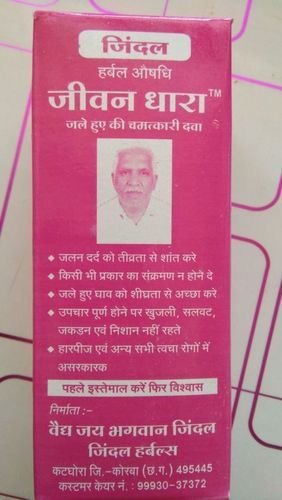 जिंदल
हर्बल औषधि
जीवन धारा™
जले हुए की चमत्कारी दवा
◆ जलन दर्द को तीव्रता से शांत करे
◆ किसी भी प्रकार का संक्रमण न होने दे
◆ जले हुए घाव को शीघ्रता से अच्छा करे
◆ उपचार पूर्ण होने पर खुजली, सलवट,
जकडन एवं निशान नहीं रहते
◆ हारपीज एवं अन्य सभी त्वचा रोगों में
असरकारक
पहले इस्तेमाल करें फिर विश्वास
निर्माता :–
वैद्य जय भगवान जिंदल
जिंदल हर्बल्स
कटघोरा जि.-कोरबा (छ.ग.) 495445
कस्टमर केयर नं. : 99930-37372